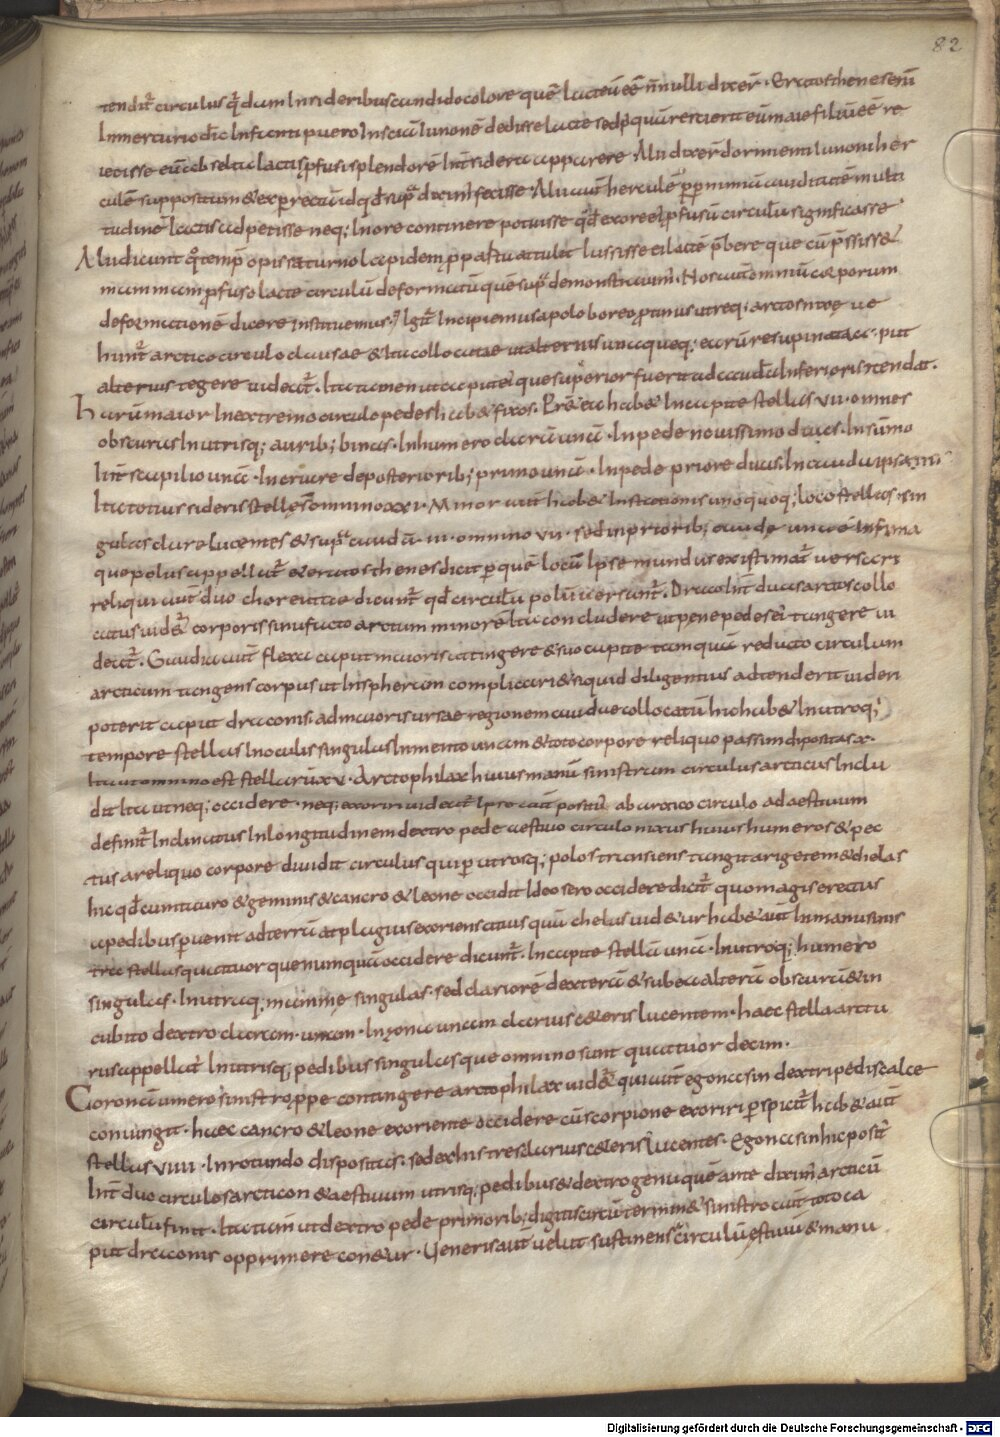 82
tendit̄ circulus q̄dam In sideribus candido colore quē lacteū eē n̄nulli dixer̄ · Eratosthenes enī
In mercurio dic̄ Infanti puero Insciā Iunonē dedisse lacte sed p̄quā rescierit eū maie filiū eē re
iecisse eū & ob se ita lactis p̄fusi splendorē Int̄ sidera apparere · Alii dixer̄ dormienti Iunoni her
culē suppositum & experrectā id qd̄ sup̄ diximꝰ fecisse · Alii aut̄ herculē p̄p̄ nimiā auiditatē multi
tudinē lactis adpetisse neq; In ore continere potuisse qd̄ ex ore ei p̄fusū circulū significasse
Alii dicunt qō temp̄ opis saturno lapidem p̄ partu attulit Iussisse ei lacte p̄bere que cū p̄ssisset
mammam p̄fuso lacte circulū deformatū quē sup̄ demonstrauim̄ · Nos aut̄ omniū corporum
deformationē dicere Instituemus · Igit̄ Incipiemus a polo boreo p̄tinus utreq; arctos nixae ue
hunt̄ arctico circulo clausae & ita collocatae ut alternis unaqueq; earū resupinatae · put
alterius tegere uideat̄ · Ita tamen ut caput ei que superior fuerit ad caudā Inferioris tendat ·
harū maior In extremo circulo pedes habet fixos · Preterea habet In capite stellas VII · omnes
obscuras In utrisq; aurib; binas · In humero clarā unā · In pede nouissimo duas · In sūmo
Int̄ scapilio unā · In crure de posteriorib; primo unā · In pede priore duas · In cauda ipsa III
Ita totius sideris stellę sunt omnino XXI · Minor aut̄ habet In stationis unoquoq; loco stellas · sin
gulas clare lucentes & sup̄ caudā III · omnino VII · sed in priorib; caude una ē Infima
que polus appellat̄ & eratosthenes dicit p̄ quē locū Ipse mundus existimat̄ uersari
reliqui aut̄ duo choreutae dicunt̄ qd̄ circulū polū uersant̄ · Draco Int̄ duas arctos collo
catus uidet̄ corporis sinu facto arctum minorē Ita concludere ut pene pedes ei tangere ui
deat̄ · Cauda aut̄ flexa caput maioris attingere & suo capite tamquā reducto circulum
arcticum tangens corpus ut In spheram complicari & siquid diligentius adtenderit uideri
poterit caput draconis · ad maioris ursae regionem caudae collocatū hic habet In utroq;
tempore stellas In oculis singulas In mento unam & toto corpore reliquo passim dipositas x ·
Ita ut omnino est stellarū XV · Arctophilax huius manū sinistram circulus arcticus Inclu
dit Ita ut neq; occidere · neq; exoriri uideat̄ Ipse aut̄ positus ab arctico circulo ad aestiuum
definit̄ Inclinatus In longitudinem dextro pede aestiuo circulo nixus huius humeros & pec
tus a reliquo corpore diuidit circulus qui p̄ utrosq; polos transiens tangit arietem & chelas
hic qd̄ cum tauro & geminis & cancro & leone occidit Ideo sero occidere dicit̄ quo magis erectus
a pedibus p̄uenit ad terrā at plagius exoriens citius quā chelas uidetur habet aut̄ In manu sinis
tra stellas quattuor que numquā occidere dicunt̄ · In capite stellā unā · In utroq; humero
singulas · In utraq; mamme singulas · sed clariorē dexterā & sub ea alterā obscurā & in
cubito dextro claram · unam · In zona unam clarius ceteris lucentem · haec stella arctu
rus appellat̄ In utrisq; pedibus singulas que omnino sunt quattuor decim ·
Coronā umero sinistro p̄pe contingere arctophilax uidet̄ qui aut̄ egonasin dextri pedis calce
coniungit · haec cancro & leone exoriente occidere cū scorpione exoriri p̄spicit̄ habet aut̄
stellas VIIII · In rotundo dispositas · sed ex his tres clarius ceteris lucentes · Egonasin hic posit̄
Int̄ duo circulos arcticon & aestiuum utrisq; pedibus & dextro genu quē ante diximꝰ arcticū
circulū finit · Ita tam̄ ut dextro pede primorib; digitis circū terminet sinistro aut̄ toto ca
put draconis opprimere conetur · Veneris aut̄ uelut sustinens circulū ęstiuū & manu
Digitalisierung gefördert durch die Deutsche Forschungsgemeinschaft - DFG